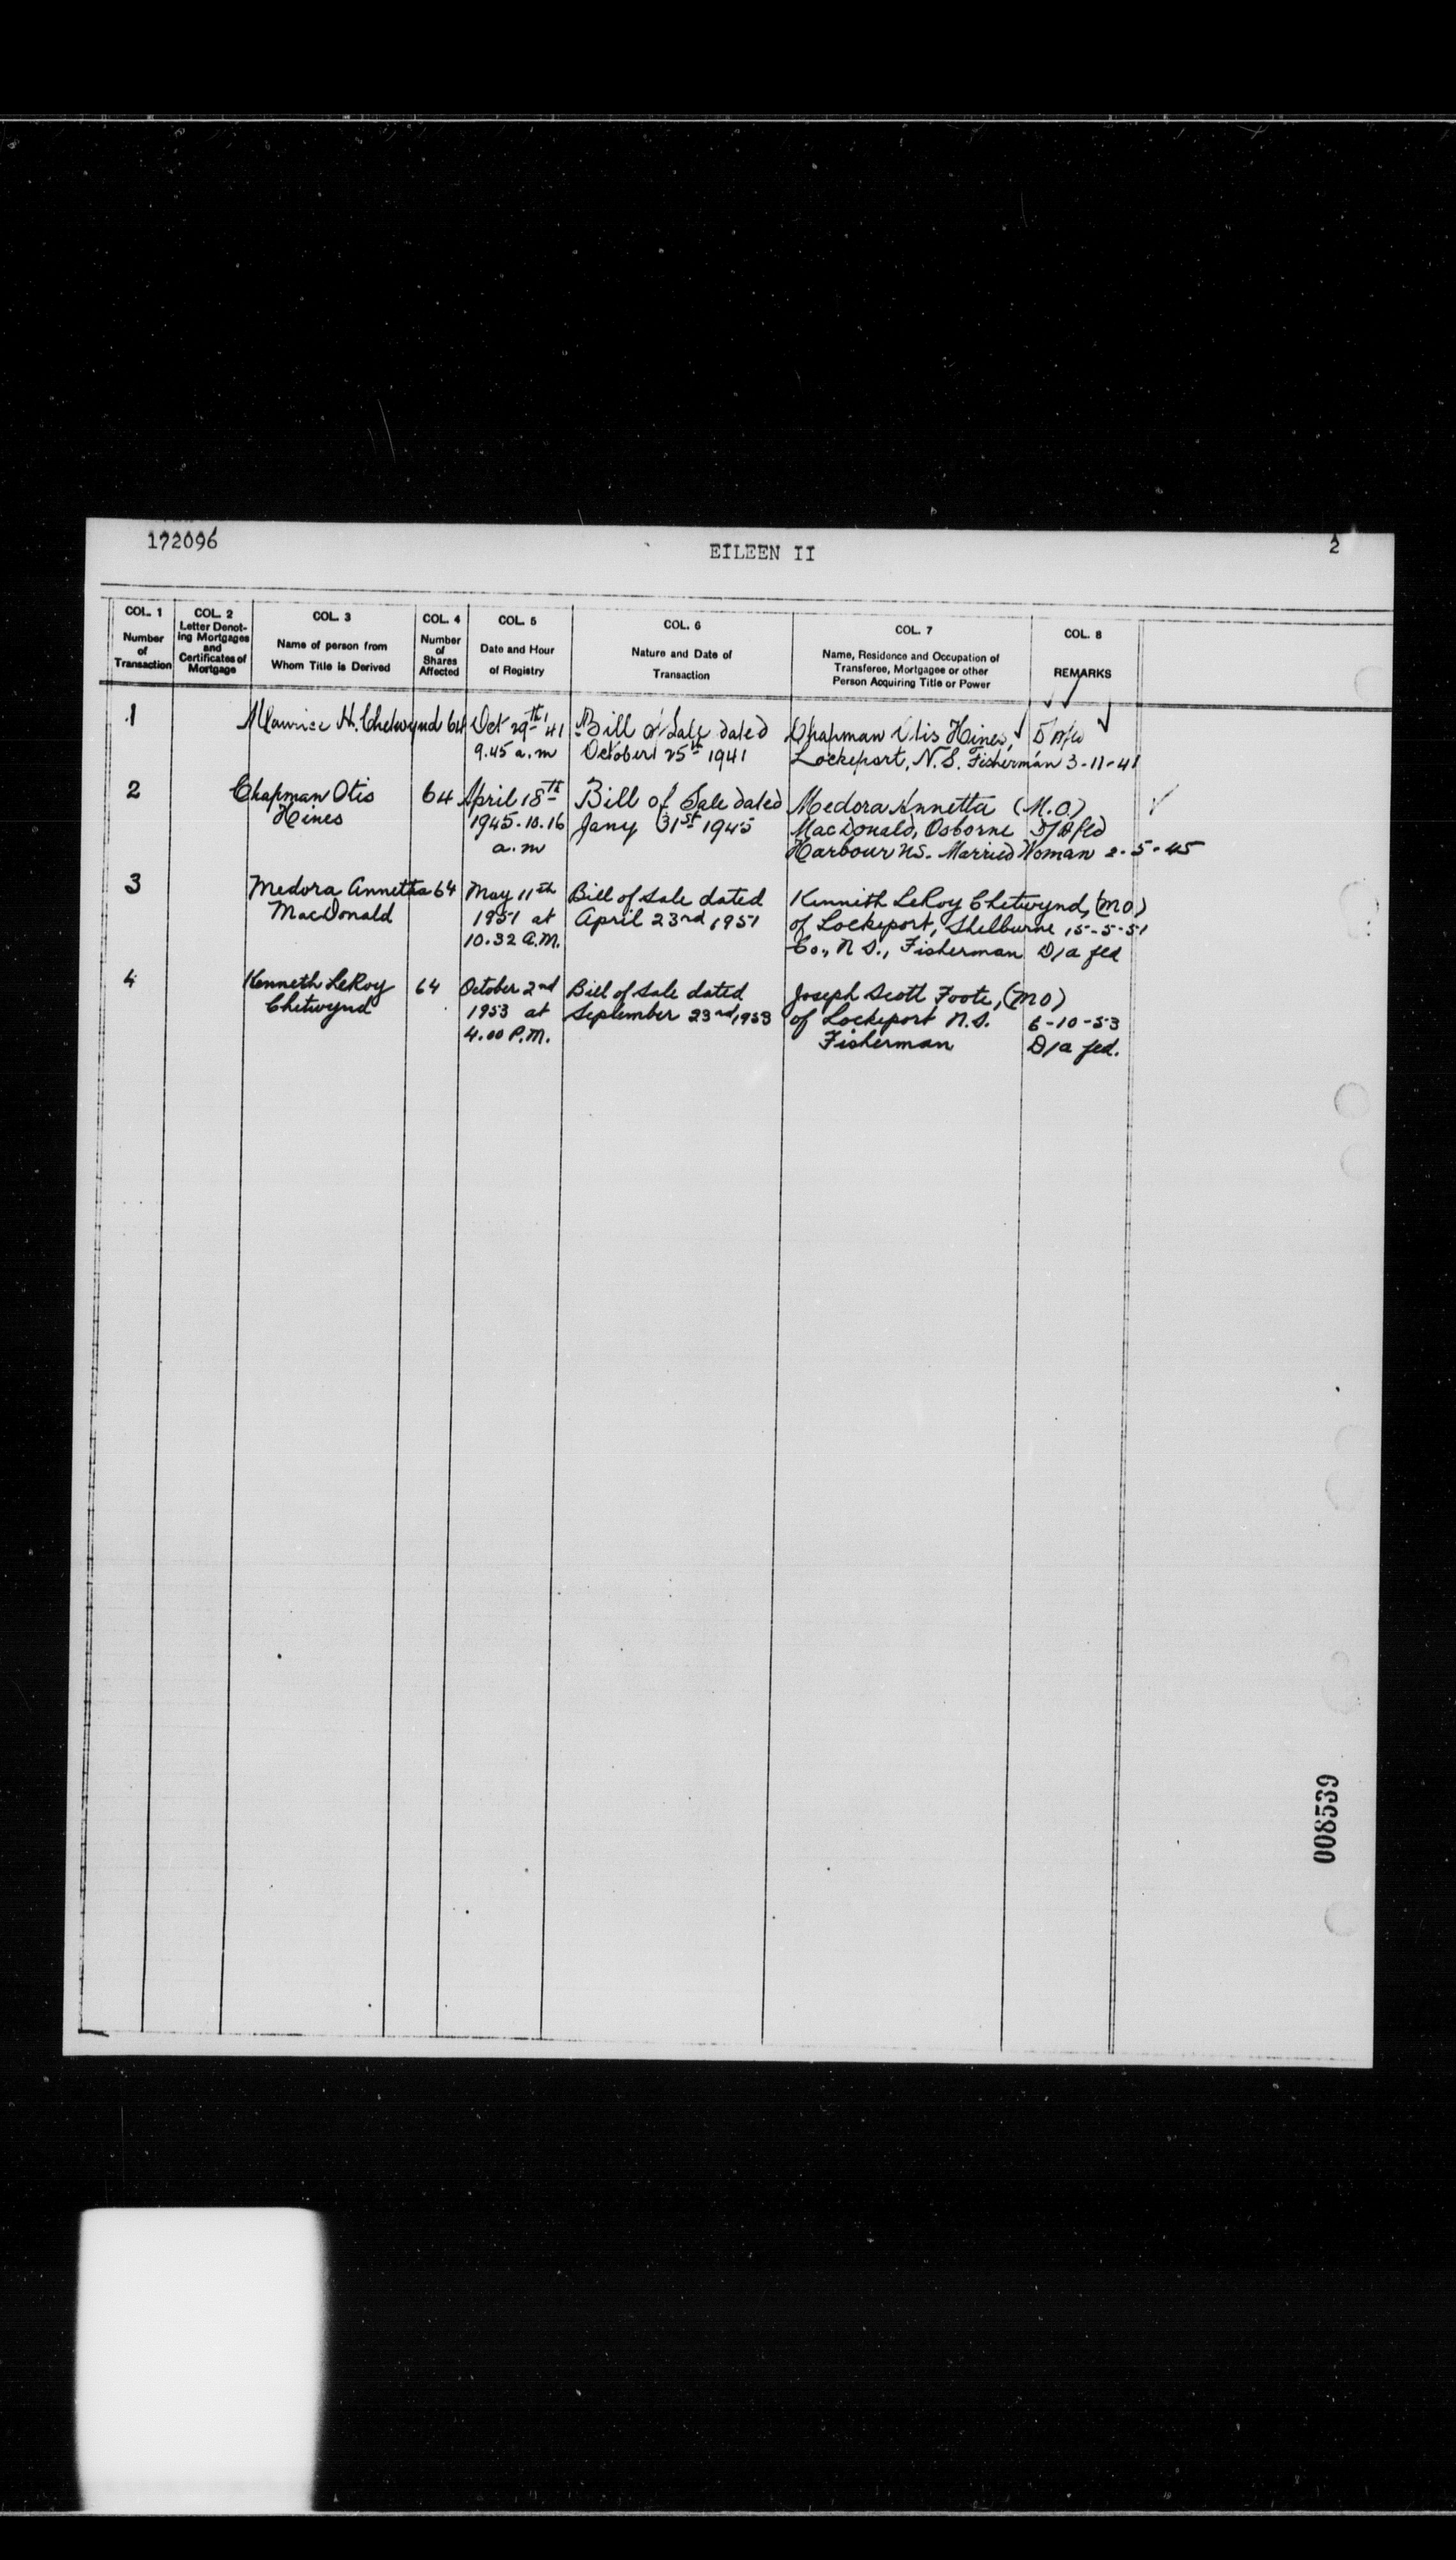 172096
EILEEN II
2
COL. 1
Number
of
Transaction
COL. 2
Letter Denot-
ing Mortgages
and
Certificates of
Mortgage
COL. 3
Name of person from
Whom Title is Derived
COL. 4
Number
of
Shares
Affected
COL. 5
Date and Hour
of Registry
COL. 6
Nature and Date of
Transaction
COL. 7
Name, Residence and Occupation of
Transferee, Mortgagee or other
Person Acquiring Title or Power
COL. 8
REMARKS
1
Maurice H. Chetwynd
64
Oct 29th '41
9.45 a.m
Bill of Sale dated
October 25th 1941
Chapman Otis Hines,
Lockeport, N.S. Fisherman
3-11-41
2
Chapman Otis
Hines
64
April 18th
1945. 10.16
a.m
Bill of Sale dated
Jany 31st 1945
Medora Annetta (M.O.)
MacDonald, Osborne
Harbour N.S. Married Woman
2-5-45
3
Medora Annetta
MacDonald
64
May 11th
1951 at
10.32 A.M.
Bill of Sale dated
April 23rd 1951
Kennith LeRoy Chetwynd, (MO)
of Lockeport, Shelburne
Co., N S., Fisherman
15-5-51
D/a fed
4
Kenneth LeRoy
Chetwynd
64
October 2nd
1953 at
4.00 P.M.
Bill of Sale dated
September 23rd, 1953
Joseph Scott Foote, (MO)
of Lockeport N.S.
Fisherman
6-10-53
D/a fed.
008539